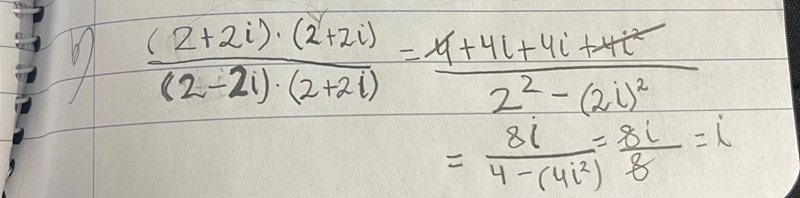 b) (2+2i)·(2+2i) / (2-2i)·(2+2i) = 4+4i+4i+4i² / 2²-(2i)²
= 8i / 4-(4i²) = 8i / 8 = i